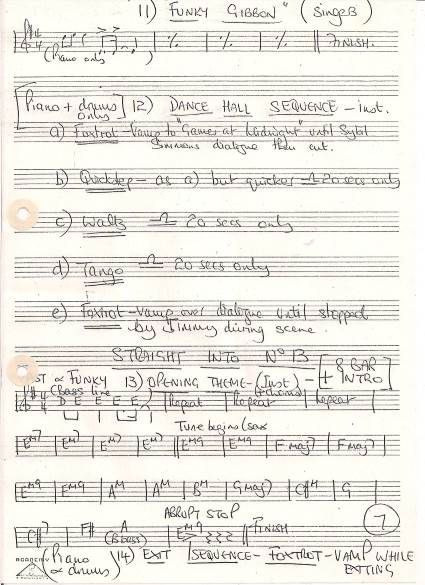 11) FUNKY GIBBON" (SINGER)
(Piano only)
FINISH.
[Piano + drums only] 12) DANCE HALL SEQUENCE - inst.
a) Foxtrot - Vamp to "Games at Midnight" until Sybil
Simmons dialogue then cut.
b) Quickstep - as a) but quicker 20 secs only
c) Waltz 20 secs only
d) Tango 20 secs only
e) Foxtrot - Vamp over dialogue until stopped
by Jimmy during scene.
STRAIGHT INTO No 13
FUNKY 13) OPENING THEME - (Inst) - [8 BAR INTRO]
(Bass line
D E E E E) | Repeat | Repeat | Repeat |
Tune begins (sax
| EM7 | EM7 | EM7 | EM7 || EM9 | EM9 | F maj7 | F maj7 |
| EM9 | EM9 | AM | AM | BM | G maj7 | C#M | G |
ABRUPT STOP
| C#7 | F# | A (B bass) | EM9 || FINISH
7
ACADEMY (Piano & drums) 14) EXIT SEQUENCE - FOXTROT - VAMP WHILE
EXITING